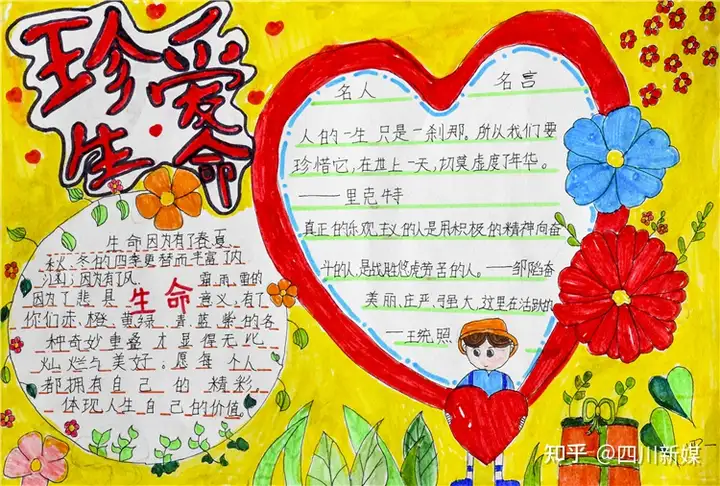 珍爱
生命
名人 名言
人的一生只是一刹那。所以我们要
珍惜它,在世上一天,切莫虚度了年华。
——里克特
真正的乐观主义的人是用积极的精神向奋
斗的人是战胜悠虎劳苦的人。——邹陷奋
美丽、庄严、强大,这里在活跃的
—王统照
生命因为有了春夏
秋、冬的四季更替而丰富了内
因为有了风、霜、雨、雪的
因为了悲喜 生命 意义,有了
你们赤、橙、黄绿 青、蓝、紫的各
种奇妙重叠才显得无比
灿烂与美好。愿每个人
都拥有自己的精彩,
体现人生自己的价值。
知乎 @四川新媒